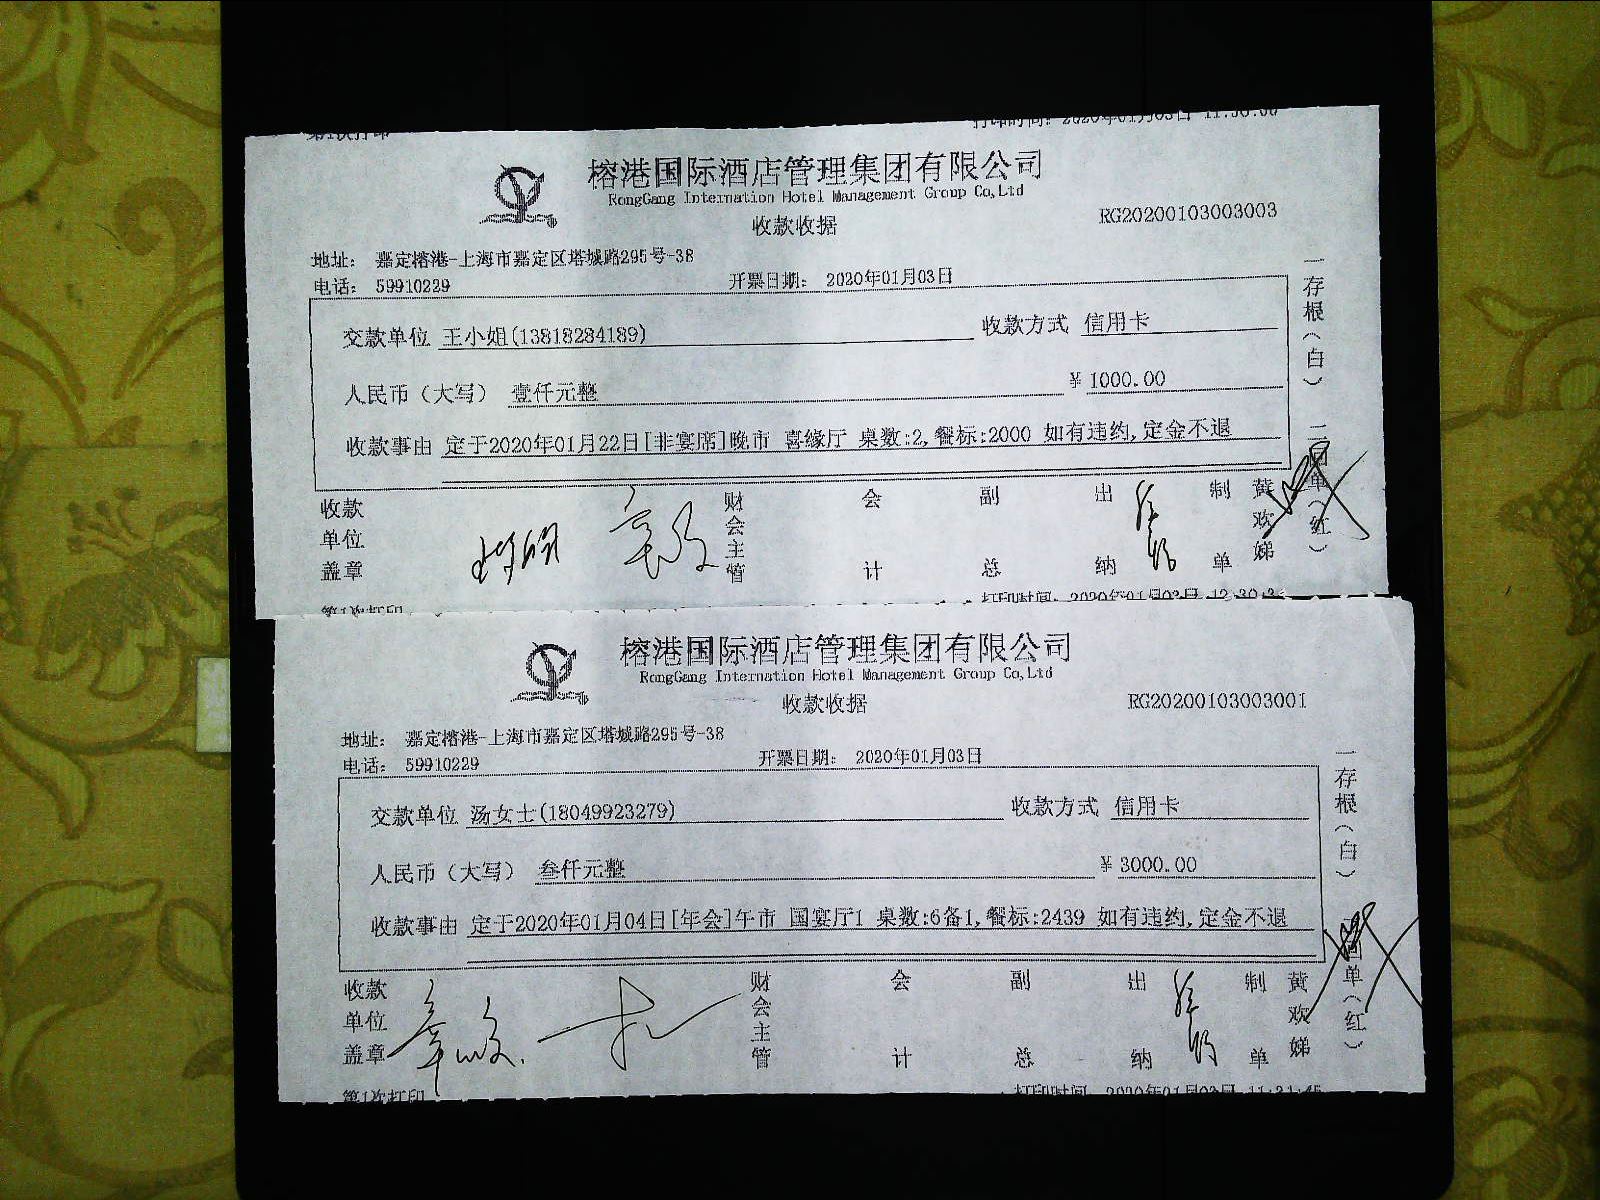 第1次打印 打印时间: 2020年01月03日 11:36:00
榕港国际酒店管理集团有限公司
RongGang Internation Hotel Management Group Co,Ltd
收款收据 RG20200103003003
地址: 嘉定榕港-上海市嘉定区塔城路295号-38
电话: 59910229 开票日期: 2020年01月03日
交款单位 王小姐(13818284189) 收款方式 信用卡
人民币(大写) 壹仟元整 ¥ 1000.00
收款事由 定于2020年01月22日[非宴席]晚市 喜缘厅 桌数:2,餐标:2000 如有违约,定金不退
一存根(白) 二回单(红)
收款单位盖章 财会主管 会计 副总 出纳 制单 黄欢娣
第1次打印 打印时间: 2020年01月03日 12:30:3
榕港国际酒店管理集团有限公司
RongGang Internation Hotel Management Group Co,Ltd
收款收据 RG20200103003001
地址: 嘉定榕港-上海市嘉定区塔城路295号-38
电话: 59910229 开票日期: 2020年01月03日
交款单位 汤女士(18049923279) 收款方式 信用卡
人民币(大写) 叁仟元整 ¥ 3000.00
收款事由 定于2020年01月04日[年会]午市 国宴厅1 桌数:6备1,餐标:2439 如有违约,定金不退
一存根(白) 回单(红)
收款单位盖章 财会主管 会计 副总 出纳 制单 黄欢娣
第1次打印 打印时间 2020年01月03日 11:31:45